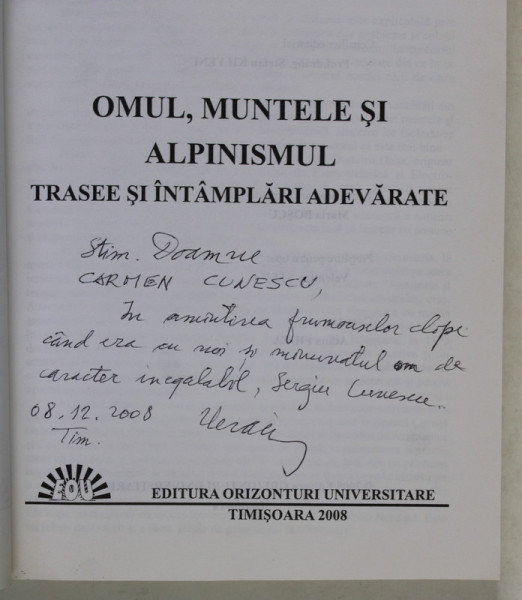 OMUL, MUNTELE ŞI
ALPINISMUL
TRASEE ŞI ÎNTÂMPLĂRI ADEVĂRATE
Stim. Doamne
CARMEN CUNESCU,
În amintirea frumoaselor clipe
când era cu noi și minunatul om de
caracter inegalabil, Sergiu Cunescu.
08.12.2008
Tim.
EOU
EDITURA ORIZONTURI UNIVERSITARE
TIMIŞOARA 2008